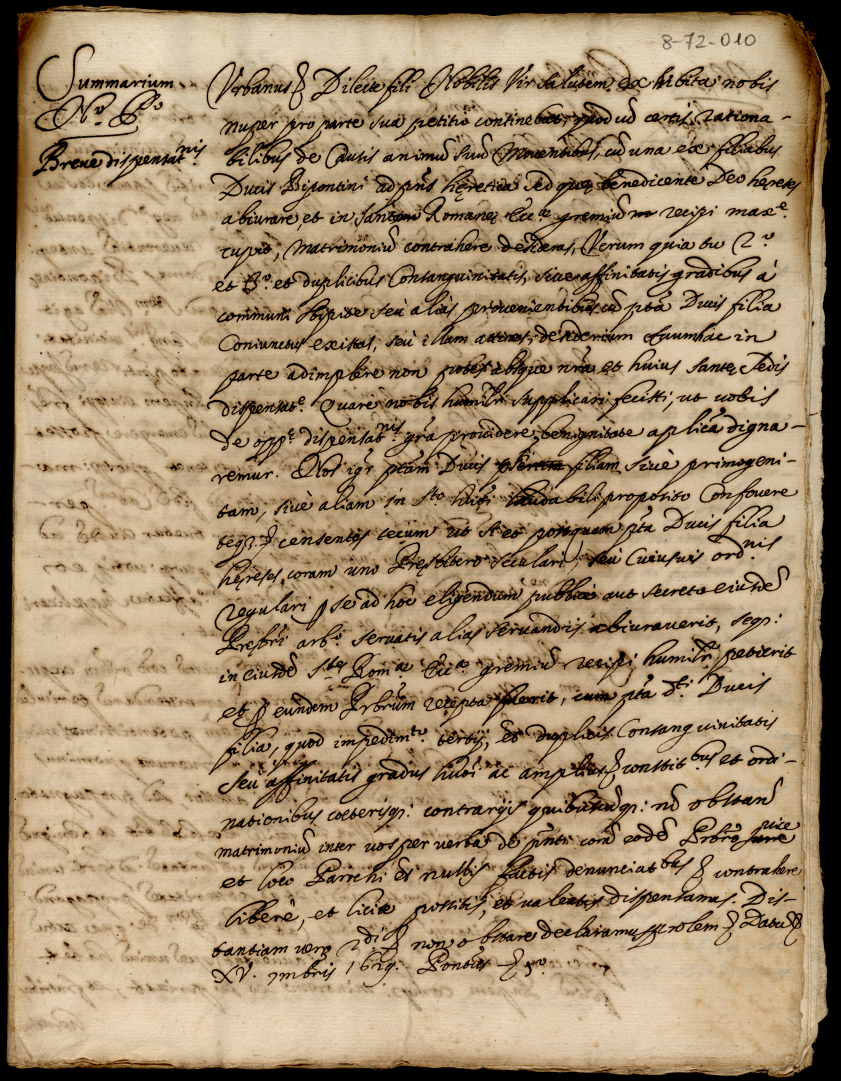 8-72-010
Summarium
N.º P.º
Breve dispensat.nis
Urbanus Dilecte fili Nobilis Vir salutem, exhibita nobis
nuper pro parte sua petitio continebat, quod cũ certis rationa-
bilibus de Causis animũ suũ moventibus, cũ una ex filiabus
Ducis Bipontini ad p̃ns hęretica sed quę, benedicente Deo hereses
abiurare, et in Sanctę Romanę Ecc.ę gremiũ recipi max.e
cupit, Matrimoniũ contrahere desideras, Verum quia tu 2.º
et 3.º et duplicibus Consanguinitatis, sive affinitatis gradibus à
communi stipite seù aliàs provenientibus cũ p̃ta Ducis filia
Coniunctus existas, seù illam attines, desiderium tuum hac in
parte adimplere non potes absque n̄ra et huius Santę Sedis
dispensat.e Quare nobis humil.r supplicari fecisti, ut vobis
de opp.e dispensat.nis gr̃a providere, benignitate ap̃lica digna-
remur. Nos ig.r p̃tam Ducis filiam sivè primogeni-
tam, sivè aliam in s.to laudabili proposito Confovere
censentes tecum ut si et postquam p̃ta Ducis filia
hęreses, coram uno Pręsbitero seculari, seù Cuiusvis ord.nis
regulari p se ad hoc eligendum publicè aut secretè eiusdẽ
Pręsbri arb.º servatis alias servandis abiuraverit, seq:
in eiusdẽ S.tę Rom.ę Ecc.ę gremiũ recipi humil.r petierit
et p eundem Prbrũm recepta fuerit, cum p̃ta d.ti Ducis
filia, quod impedim.to tertij, et duplicis Consanguinitatis
seù affinitatis gradus huõi ac amplius constit.bus et ordi-
nationibus cœterisq: contrarijs quibuscũq: nõ obstanẽ
matrimoniũ inter vos per verba de p̃nti corã eodẽ Prbro vice
et loco Parrchi et nullis factis denunciat.bus contrahere
liberè, et licitè possitis, et valeatis dispensamus. Dis-
tantiam verò non obstare declaramus prolem Datũ
XV. Pontũs